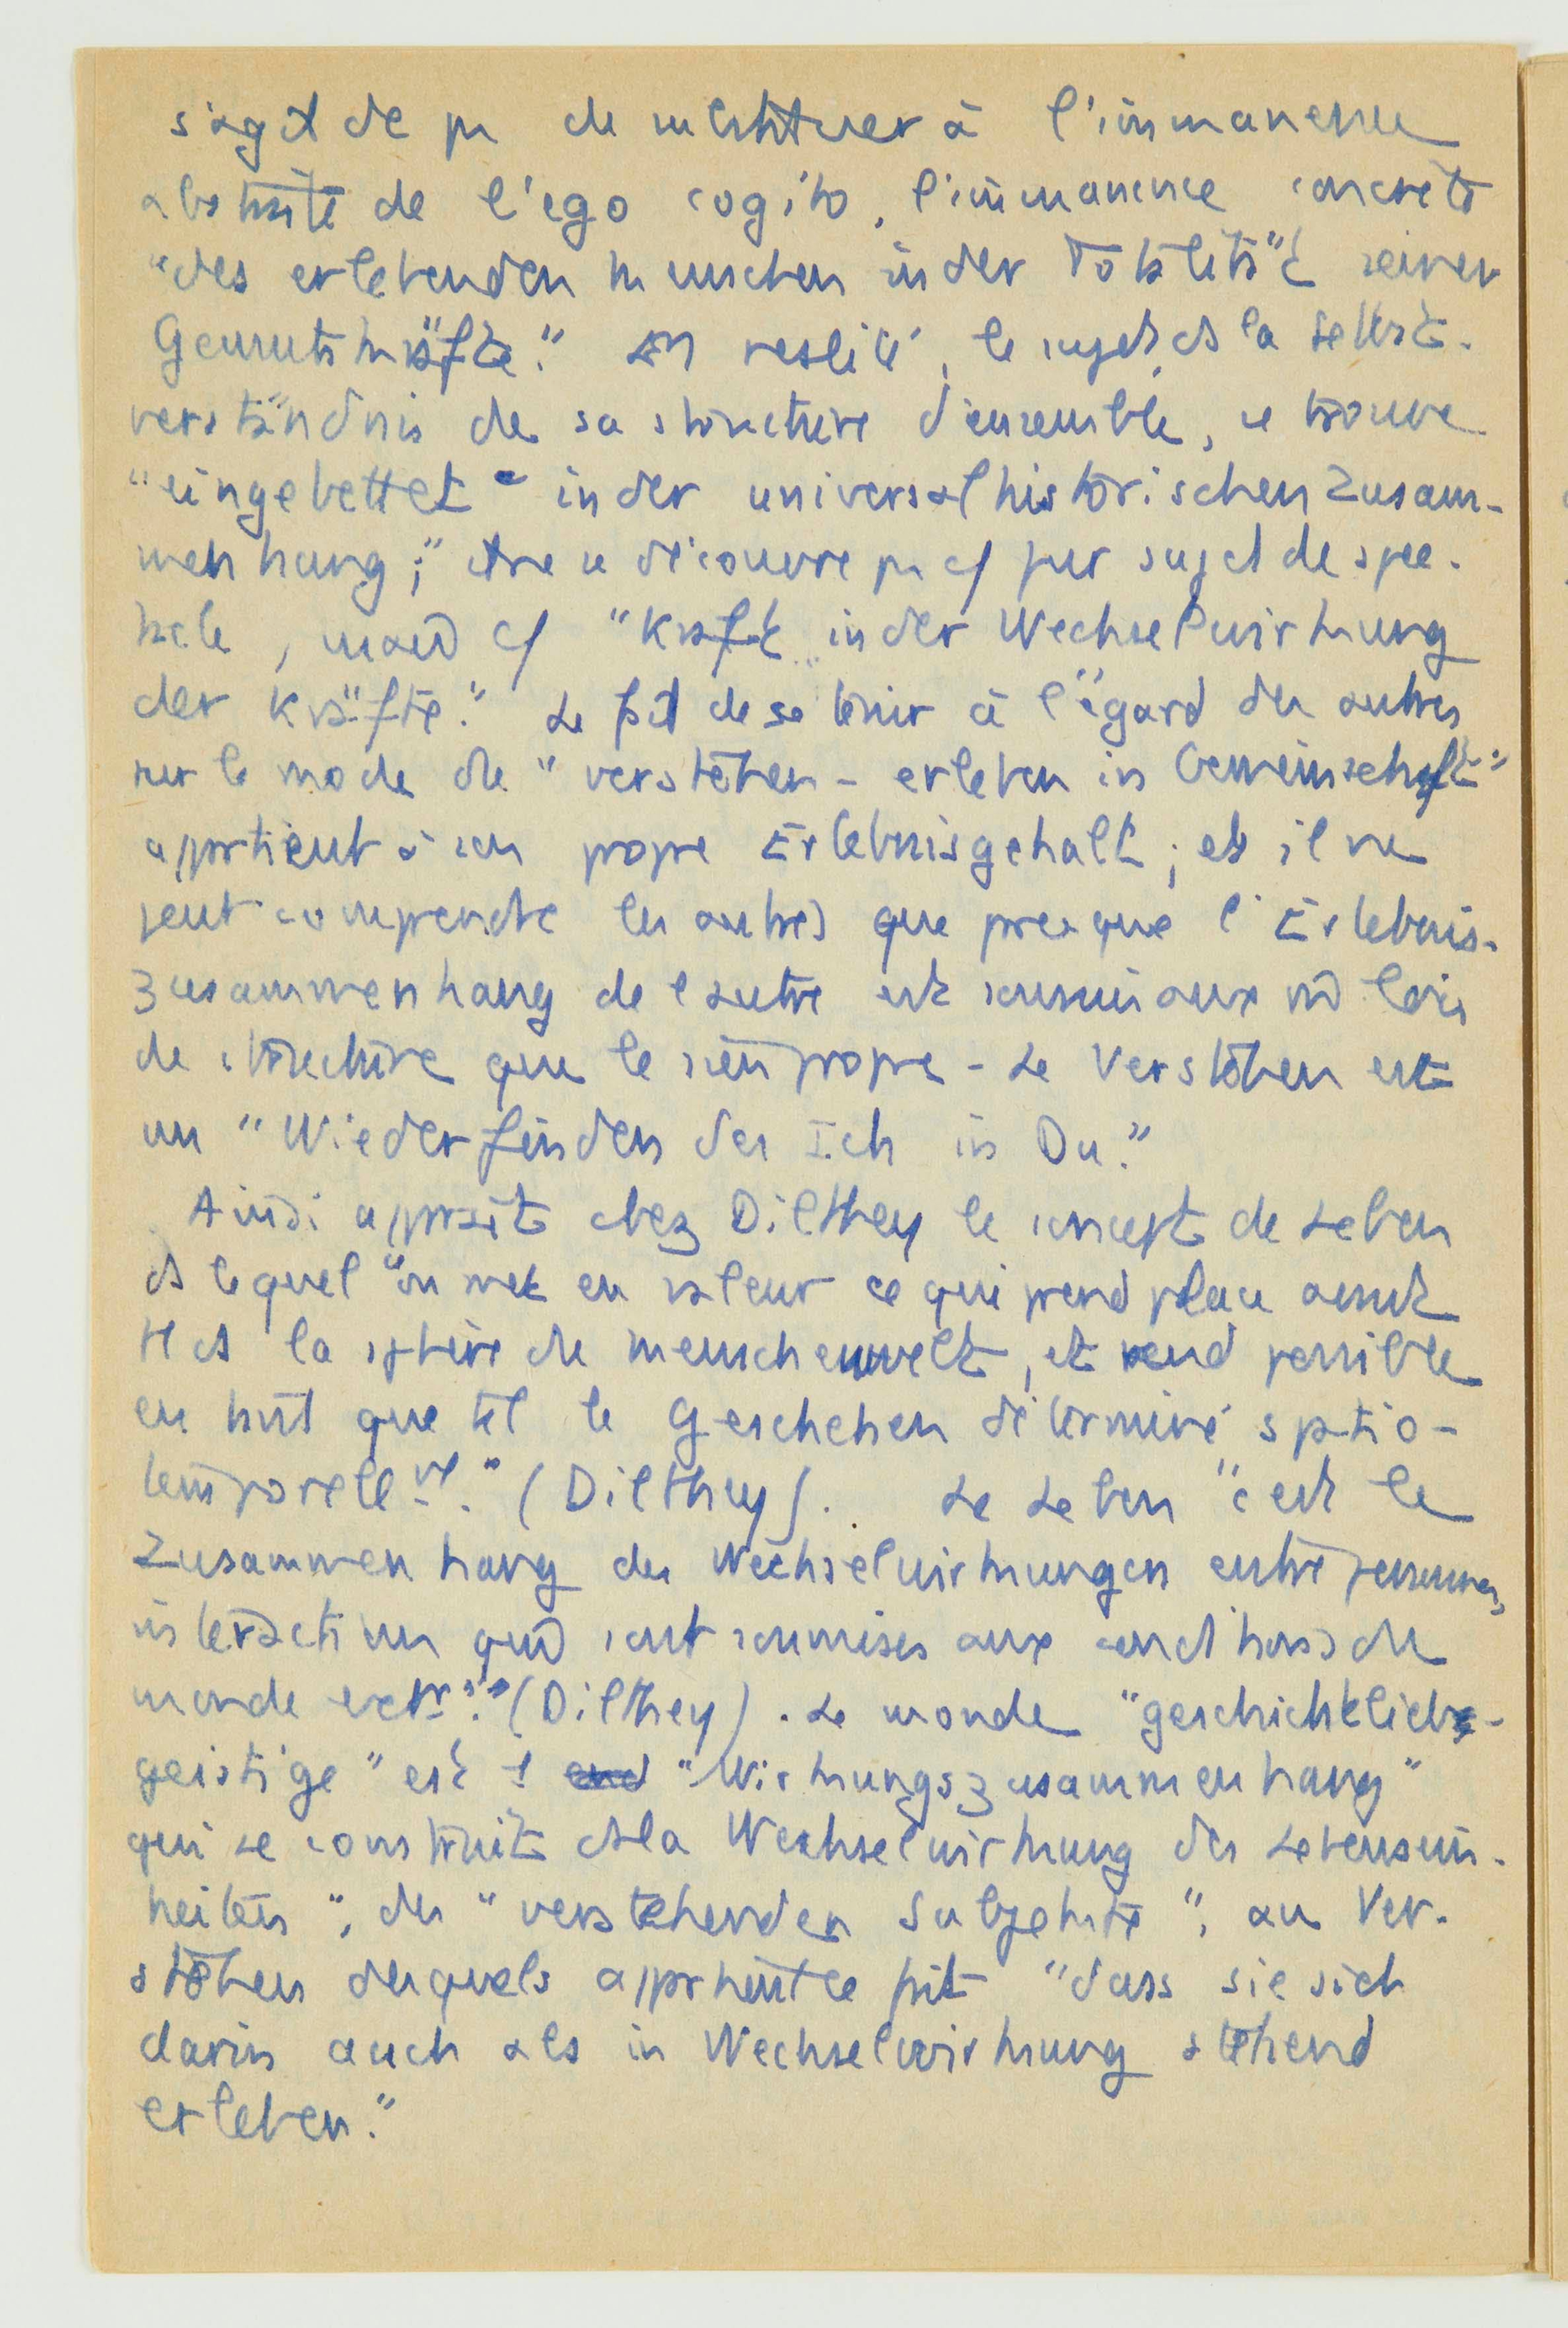 s'agit de pr de substituer à l'immanence
abstraite de l'ego cogito, l'immanence concrète
"des erlebenden Menschen in der Totalität seiner
Gemutskräfte." En réalité, le sujet, ds la Selbst-
verständnis de sa structure d'ensemble, se trouve
"eingebettet" in der universalhistorischen Zusam-
menhang;" être se découvre pas cf pur sujet de spec-
tacle, mais cf "Kraft in der Wechselwirkung
der Kräfte." Le fait de se tenir à l'égard des autres
sur le mode du "verstehen - erleben in Gemeinschaft"
appartient à son propre Erlebnisgehalt; et il ne
peut comprendre les autres que presque l'Erlebnis-
zusammenhang de l'autre est soumis aux m̄ lois
de structure que le sien propre - Le Verstehen est
un "Wiederfinden des Ich in Du."
Ainsi apparaît chez Dilthey le concept de Leben
ds lequel "on met en valeur ce qui prend place avant
tt ds la sphère de Menschenwelt, et rend possible
en tant que tel le Geschehen déterminé spatio-
temporellement." (Dilthey). Le Leben "c'est le
Zusammenhang des Wechselwirkungen entre personnes,
interaction qui sont soumises aux conditions du
monde extr." (Dilthey). Le monde "geschichtlich-
geistige" est 1 "Wirkungszusammenhang"
qui se construit ds la Wechselwirkung des Lebensein-
heiten", des "verstehenden Subjekte", au Ver-
stehen desquels appartient le fait "dass sie sich
darin auch als in Wechselwirkung stehend
erleben."